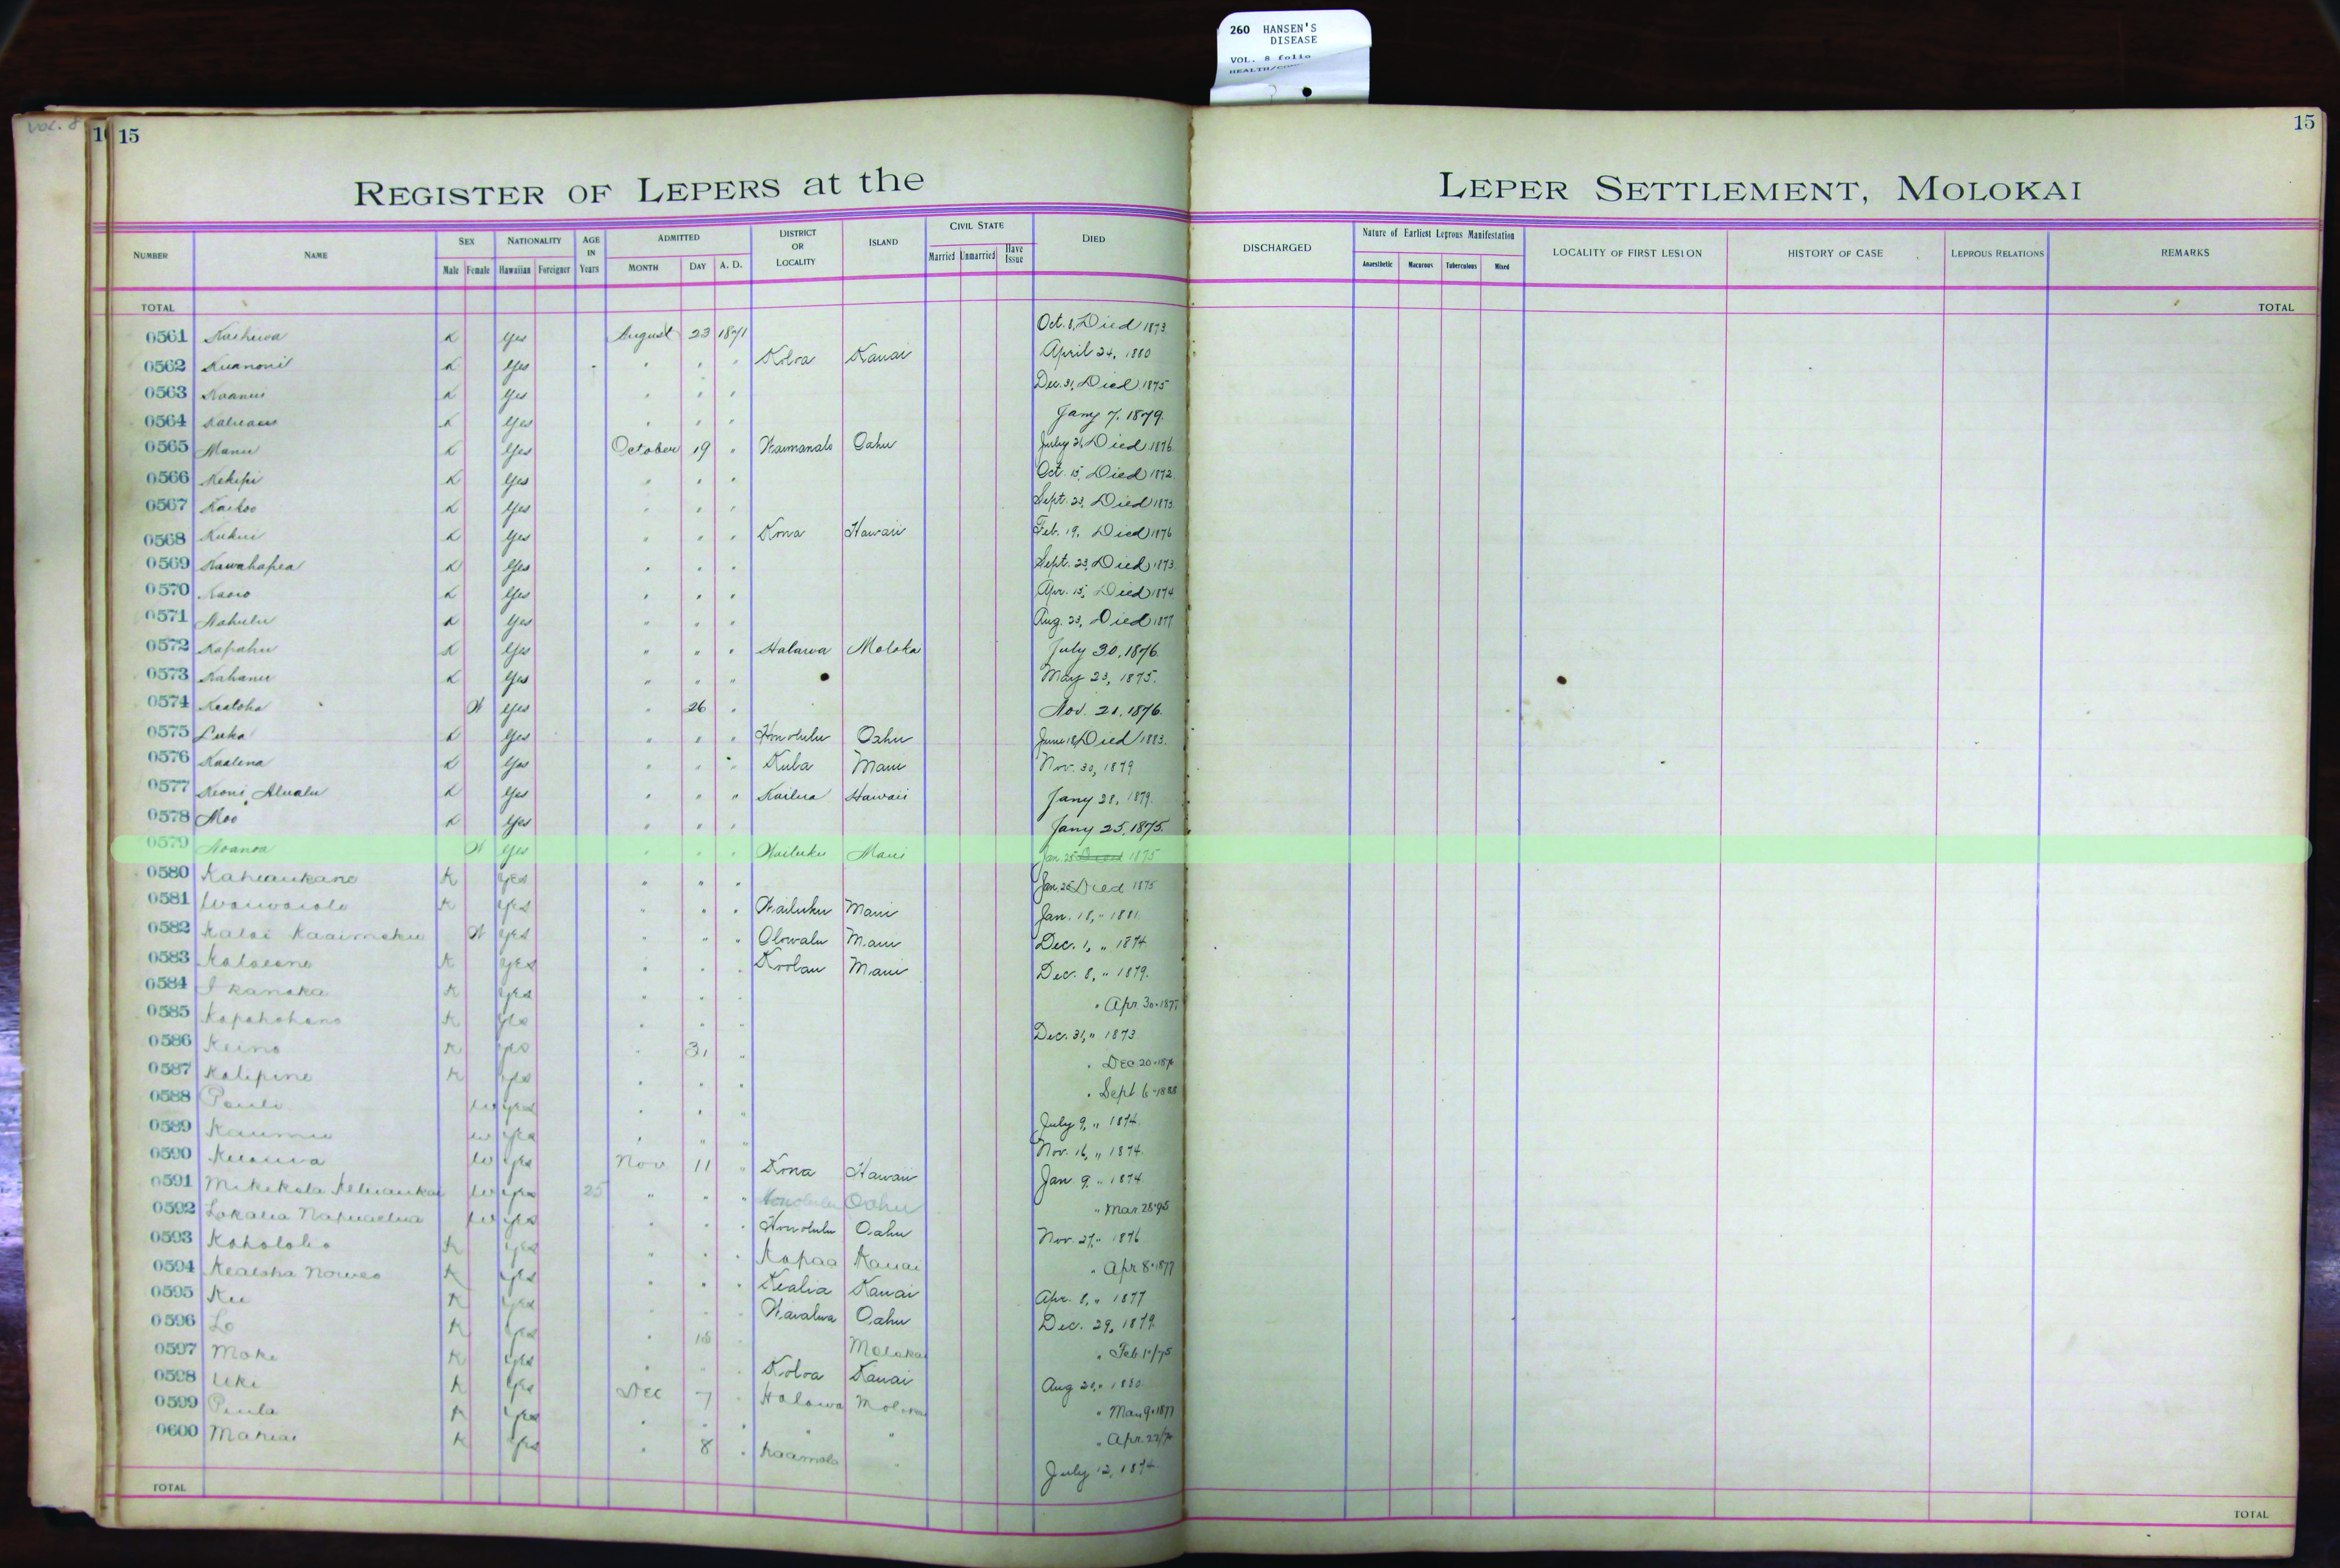 260 HANSEN'S
DISEASE
VOL. 8 folio
VOL. 8
15
15
REGISTER OF LEPERS at the LEPER SETTLEMENT, MOLOKAI
NUMBER NAME SEX Male Female NATIONALITY Hawaiian Foreigner AGE IN Years ADMITTED MONTH DAY A. D. DISTRICT OR LOCALITY ISLAND CIVIL STATE Married Unmarried Have Issue DIED DISCHARGED Nature of Earliest Leprous Manifestation Anaesthetic Macurous Tuberculous Mixed LOCALITY OF FIRST LESION HISTORY OF CASE LEPROUS RELATIONS REMARKS
TOTAL TOTAL
0561 K Yes August 23 1871 Oct. 8, Died 1873
0562 K Yes " " " Koloa Kauai April 24, 1880
0563 K Yes " " " Dec. 31, Died 1875
0564 K Yes " " " Jany 7, 1879.
0565 Manu K Yes October 19 " Waimanalo Oahu July Died 1876
0566 Kekipi K Yes " " " Oct. 15, Died 1872
0567 Kaikoo K Yes " " " Sept. 23, Died 1873
0568 Kukui K Yes " " " Kona Hawaii Feb. 19, Died 1876
0569 Kawahapea K Yes " " " Sept. 23, Died 1873
0570 K Yes " " " Apr. 15, Died 1874
0571 K Yes " " " Aug. 23, Died 1877
0572 Kapahu K Yes " " " Halawa Moloka July 30, 1876.
0573 Kahanu K Yes " " " May 23, 1875.
0574 Kealoha W Yes " 26 " Nov. 21, 1876.
0575 Luka K Yes " " " Honolulu Oahu June 18, Died 1883.
0576 Kaalena K Yes " " " Kula Maui Nov. 30, 1879
0577 Keoni K Yes " " " Kailua Hawaii Jany 28, 1879.
0578 Moo K Yes " " " Jany 25, 1875.
0579 W Yes " " " Wailuku Maui Jan. 25 Died 1875
0580 Kaheaukane K Yes " " " Jan. 25 Died 1875
0581 K Yes " " " Wailuku Maui Jan. 18, " 1881
0582 Kalai Kaaimoku W Yes " " " Olowalu Maui Dec. 1, " 1874
0583 K Yes " " " Koolau Maui Dec. 8, " 1879.
0584 I kanaka K Yes " " " " Apr 30-187
0585 K Yes " " " Dec. 31, " 1873
0586 Keino K Yes " 31 " " Dec 20-
0587 Kalipine K Yes " " " " Sept 6-1888
0588 Pauli W Yes " " " July 9, " 1874
0589 Kaumu W Yes " " " Nov. 16, " 1874.
0590 W Yes Nov 11 " Kona Hawaii Jan 9 " 1874
0591 W Yes 25 " " " Honolulu Oahu " Mar. 28-95
0592 W Yes " " " Honolulu Oahu Nov. 27, " 1876
0593 Kaholoko K Yes " " " Kapaa Kauai " Apr 8-1877
0594 Kealoha K Yes " " " Kealia Kauai Apr. 8, " 1877
0595 Ku K Yes " " " Waialua Oahu Dec. 29, 1879
0596 Lo K Yes " 18 " Molokai " Feb
0597 Moke K Yes " " " Koloa Kauai Aug " 1880
0598 Uki K Yes Dec 7 " Halawa " Mar 9-1877
0599 Piula K Yes " " " " " " Apr. 22
0600 K Yes " 8 " " July 12, 1874
TOTAL TOTAL